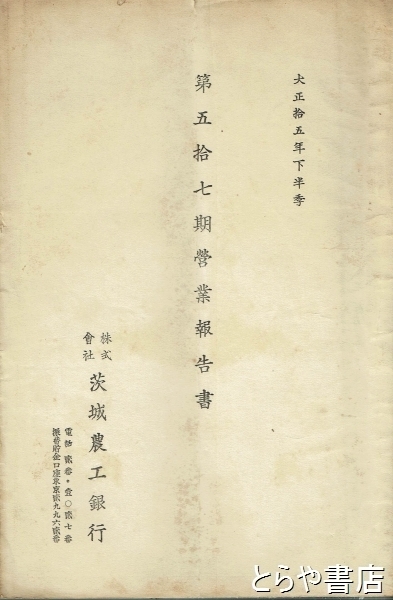 大正拾五年下半季
第五拾七期營業報告書
株式會社 茨城農工銀行
電話 貳番・壹〇貳七番
振替貯金口座東京貳九九六貳番
とらや書店